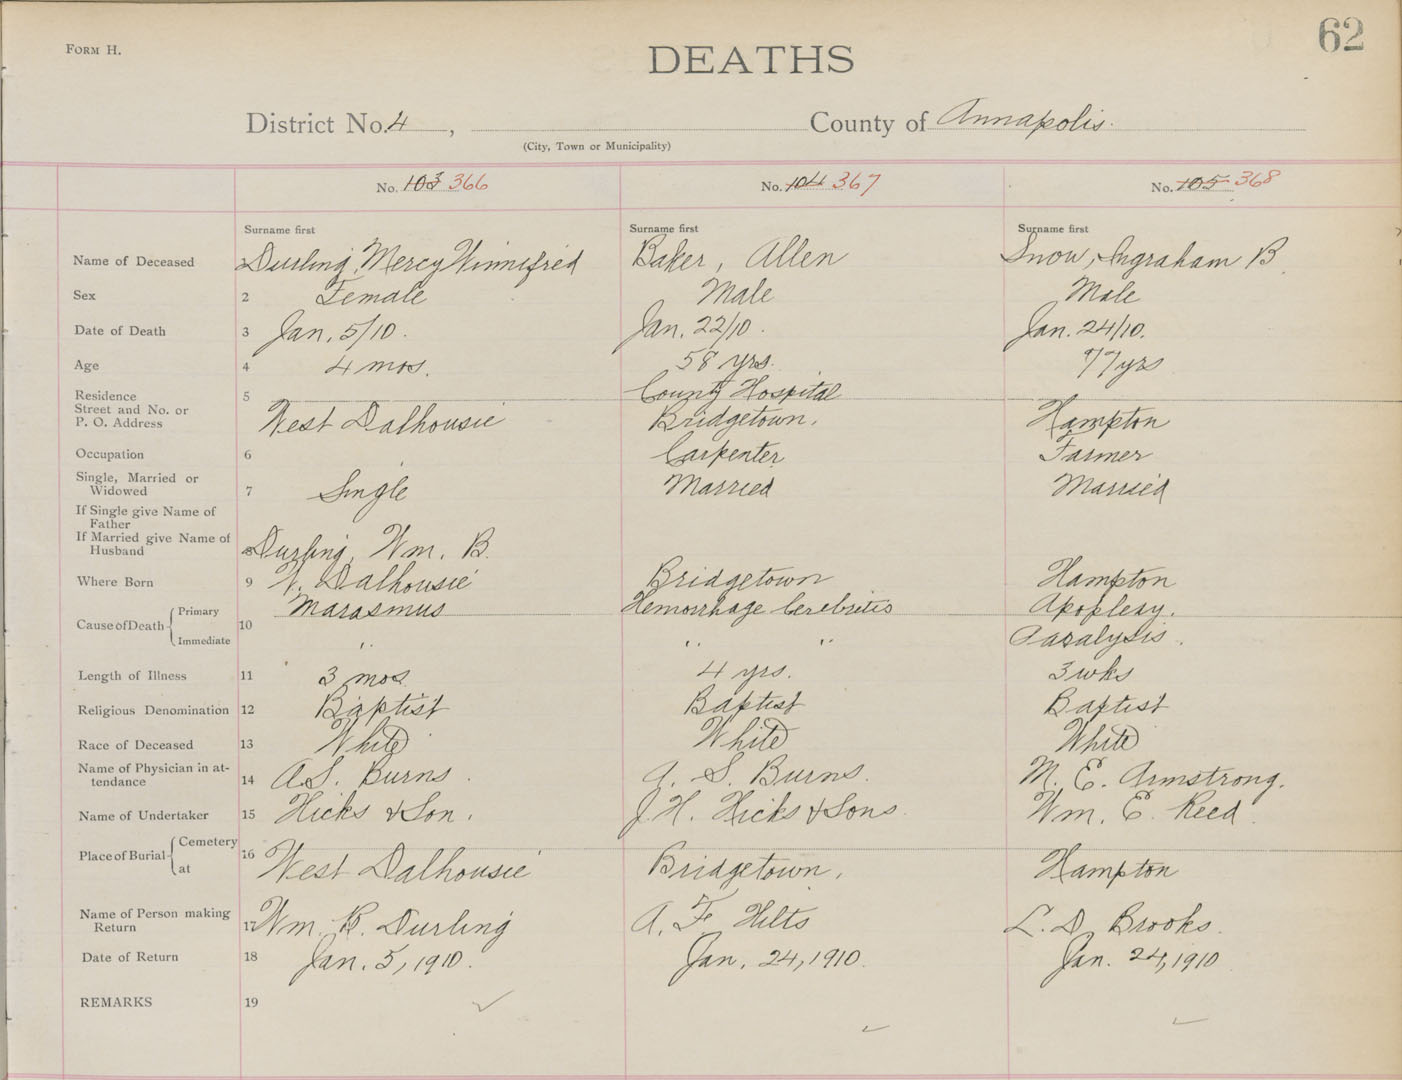 62
FORM H.
DEATHS
District No. 4 , County of Annapolis.
(City, Town or Municipality)
No. 103 366 No. 104 367 No. 105 368
Surname first Surname first Surname first
Name of Deceased Durling, Mercy Winnifred Baker, Allen Snow, Ingraham B
Sex 2 Female Male Male
Date of Death 3 Jan. 5/10. Jan. 22/10. Jan. 24/10.
Age 4 4 mos. 58 yrs. 77 yrs
Residence 5 County Hospital
Street and No. or
P. O. Address West Dalhousie Bridgetown. Hampton
Occupation 6 Carpenter Farmer
Single, Married or
Widowed 7 Single Married Married
If Single give Name of
Father
If Married give Name of
Husband 8 Durling, Wm. B.
Where Born 9 W. Dalhousie Bridgetown Hampton
Cause of Death { Primary Marasmus Hemorrhage Cerebritis Apoplexy.
10
Immediate " " " Paralysis.
Length of Illness 11 3 mos 4 yrs. 3 wks
Religious Denomination 12 Baptist Baptist Baptist
Race of Deceased 13 White White White
Name of Physician in at-
tendance 14 A.S. Burns. A. S. Burns. M. E. Armstrong.
Name of Undertaker 15 Hicks & Son. J. H. Hicks & Sons. Wm. E. Reed.
Place of Burial { Cemetery 16
at West Dalhousie Bridgetown. Hampton
Name of Person making
Return 17 Wm. B. Durling A. F. Hilts L. D. Brooks.
Date of Return 18 Jan. 5, 1910. Jan. 24, 1910. Jan. 24, 1910
REMARKS 19